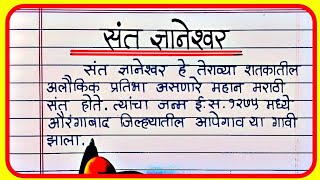 संत ज्ञानेश्वर
संत ज्ञानेश्वर हे तेराव्या शतकातील
अलौकिक प्रतिभा असणारे महान मराठी
संत होते. त्यांचा जन्म ई.स.१२७५ मध्ये
औरंगाबाद जिल्ह्यातील आपेगाव या गावी
झाला.